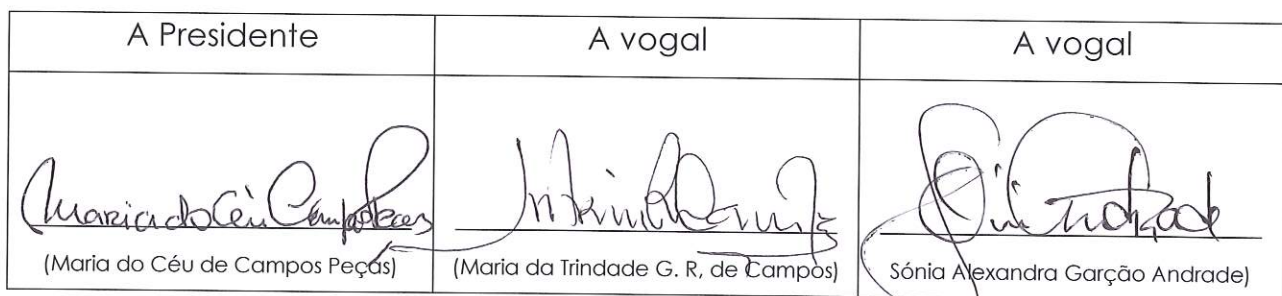 A Presidente
A vogal
A vogal
Maria do Céu Campos Peças
Sónia Andrade
(Maria do Céu de Campos Peças)
(Maria da Trindade G. R, de Campos)
Sónia Alexandra Garção Andrade)